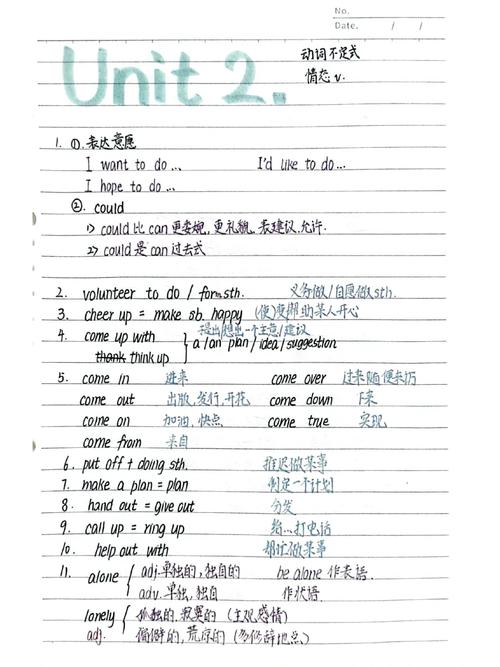 No.
Date. / /
Unit 2.
动词不定式
情态 v.
1. ①. 表达意愿
I want to do ... I'd like to do ...
I hope to do ...
②. could
1> could 比 can 更委婉, 更礼貌. 表建议. 允许.
2> could 是 can 过去式
2. volunteer to do / for sth. 义务做/自愿做 sth.
3. cheer up = make sb. happy (使)变 帮助某人开心
4. come up with 提出/想出一个主意/建议
think up } a / an plan / idea / suggestion
5. come in 进来 come over 过来 随便来访
come out 出版, 发行, 开花 come down 下来
come on 加油, 快点 come true 实现
come from 来自
6. put off + doing sth. 推迟做某事
7. make a plan = plan 制定一个计划
8. hand out = give out 分发
9. call up = ring up 给...打电话
10. help out with 帮忙做某事
11. alone { adj. 单独的, 独自的 be alone 作表语.
adv. 单独, 独自 作状语.
lonely { 孤独的, 寂寞的 (主观感情)
adj. 偏僻的, 荒凉的 (多修辞地点)